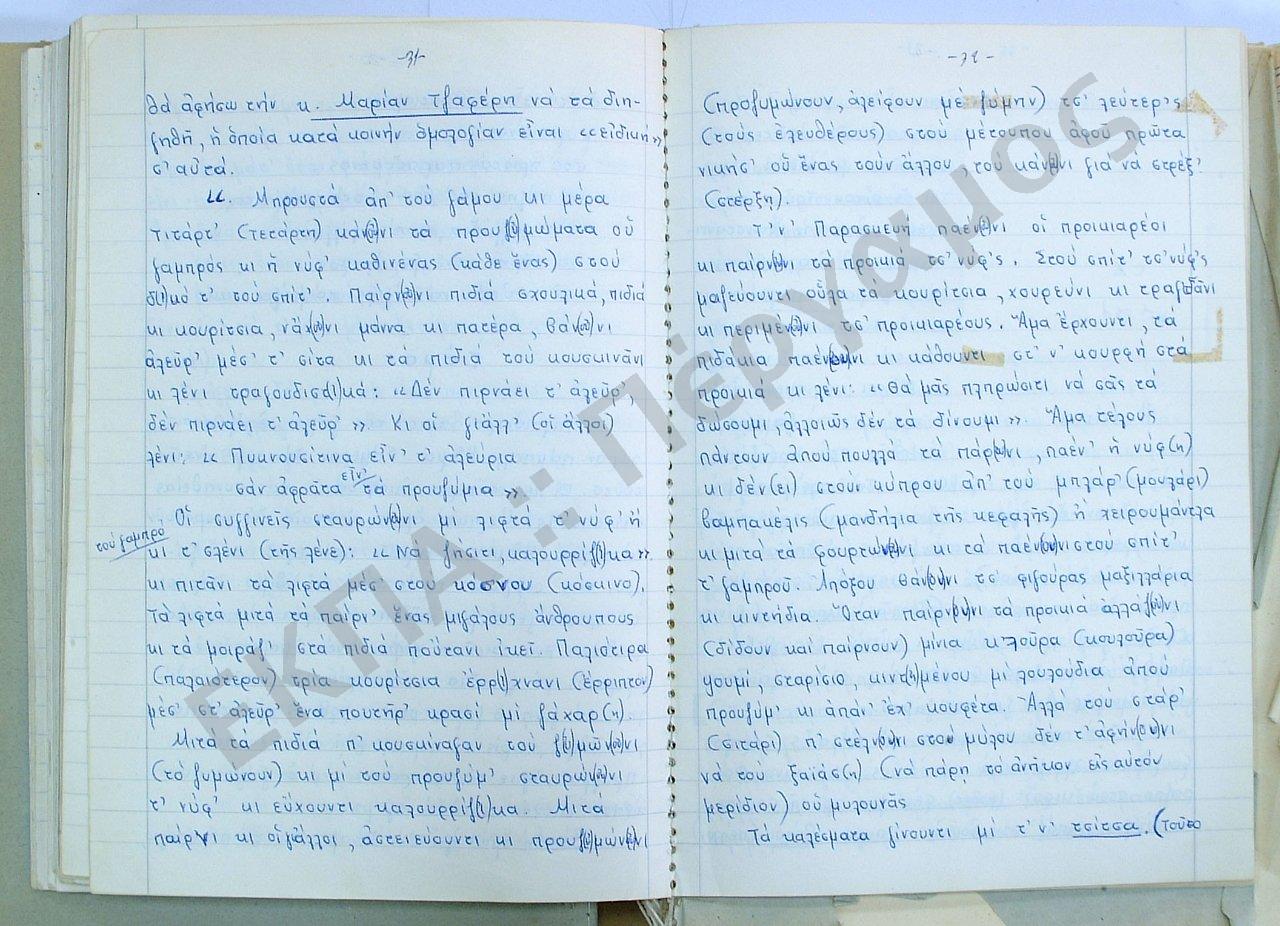 -31-
θά ἀφήσω τήν κ. Μαρίαν Τζαφέρη νά τά διη-
γηθῆ, ἡ ὁποία κατά κοινήν ὁμολογίαν εἶναι «εἰδική»
σ' αὐτά.
«. Μπρουστά ἀπ' τοῦ γάμου κι μέρα
Τιτάρτ' (τετάρτη) κάν(ου)νι τά προυζ(υ)μώματα οὗ
γαμπρός κι ἡ νύφ' καθινένας (κάθε ἕνας) στοῦ
δ(ι)κό τ' τοῦ σπίτ'. Παίρν(ου)νι πιδιά σχουλικά, πιδιά
κι κουρίτσια, νἄχ(ου)νι μάννα κι πατέρα, βάν(ου)νι
ἀλεύρ' μέσ' τ' σίτα κι τά πιδιά τοῦ κουσκινᾶνι
κι λένι τραγουδισ(ι)κά: «Δέν πιρνάει τ' ἀλεῦρ',
δέν πιρνάει τ' ἀλεῦρ'» Κι οἱ γιάλλ' (οἱ ἄλλοι)
λένι: « Πυκνουσίτινα εἶν' τ' ἀλεύρια
σάν ἀφρᾶτα εἶν' τά προυζύμια »
Οἱ συγγινεῖς σταυρών(ου)νι μί λιφτά τ' νύφ' ἤ
τοῦ γαμπρό
κι τ' σλένι (τῆς λένε): «Νά ζήσιτι, καλουρρίζ(ι)κα».
κι πιτᾶνι τά λιφτά μέσ' στού κόσνου (κόσκινο).
Τά λιφτά μιτά τά παίρν' ἕνας μιγάλους ἄνθρουπους
κι τά μοιράζ' στα πιδιά πούτανι ἰκεῖ. Παλιότιρα
(παλαιότερον) τρία κουρίτσια ἔρρ(ι)χνανι (ἔρριπτον)
μέσ' στ' ἀλεῦρ' ἕνα πουτήρ' κρασί μί ζάχαρ(η).
Μιτά τά πιδιά π' κουσκίναγαν τοῦ ζ(υ)μών(ου)νι
(τό ζυμώνουν) κι μί τοῦ προυζύμ' σταυρών(ου)νι
τ' νύφ' κι εὔχουντι καλουρρίζ(ι)κα. Μιτα
παίρνι κι οἱ γιάλλοι, ἀστειεύουντι κι προυζ(υ)μών(ου)νι
-32-
(προζυμώνουν, ἀλείφουν μέ ζύμην) τσ' λεύτερ'ς
(τούς ἐλευθέρους) στού μέτουπου ἀφοῦ πρῶτα
νικήσ' οὗ ἕνας τούν ἄλλου, τοῦ κάν(ου)νι γιά νά στρέξ'
(στέρξη).
Τ'ν Παρασκευή παέν(ου)νι οἱ προικιαρέοι
κι παίρν(ου)νι τά προικιά τσ' νύφ'ς. Στού σπίτ' τσ' νύφ'ς
μαζεύουντι οὗλα τά κουρίτσια, χουρεύνι κι τραγ(ου)δᾶνι
κι περιμέν(ου)νι τσ' προικιαρέους. Ἅμα ἔρχουντι, τά
πιδάκια παέν(ου)νι κι κάθουντι στ' ν' κουρφή στά
προικιά κι λένι: «Θά μᾶς πληρώσιτι νά σᾶς τά
δώσουμι, ἀλλοιῶς δέν τά δίνουμι». Ἅμα τέλους
πάντουν ἀπουπουλλά τά πάρ(ου)νι, παέν' ἡ νύφ(η)
κι δέν(ει) στούν κύπρου ἀπ' τοῦ μπλάρ' (μουλάρι)
βαμπακέλις (μανδήλια τῆς κεφαλῆς) ἤ χειρουμάντλα
κι μιτά τά φουρτών(ου)νι κι τά παέν(ου)νι στού σπίτ'
τ' γαμπροῦ. Ἀπόξου βάν(ου)νι τσ' φιγούρας μαξιλλάρια
κι κιντήδια. Ὅταν παίρν(ου)νι τά προικιά ἀλλάζ(ου)νι
(δίδουν καί παίρνουν) μίνια κ'λούρα (κουλούρα)
ψουμί, σταρίσιο, κιντ(η)μένου μί λουλούδια ἀπού
προυζύμ' κι ἀπάν' ἔχ' κουφέτα. Ἀλλά τοῦ στάρ'
(σιτάρι) π' στέλν(ου)νι στού μύλου δέν τ' ἀφήν(ου)νι
νά τοῦ ξαϊάσ(η) (νά πάρη τό ἀνῆκον εἰς αὐτόν
μερίδιον) οὗ μυλουνᾶς
Τά καλέσματα γίνουντι μί τ' ν' τσίτσα. (Τοῦτο
ΕΚΠΑ :: Πέργαμος